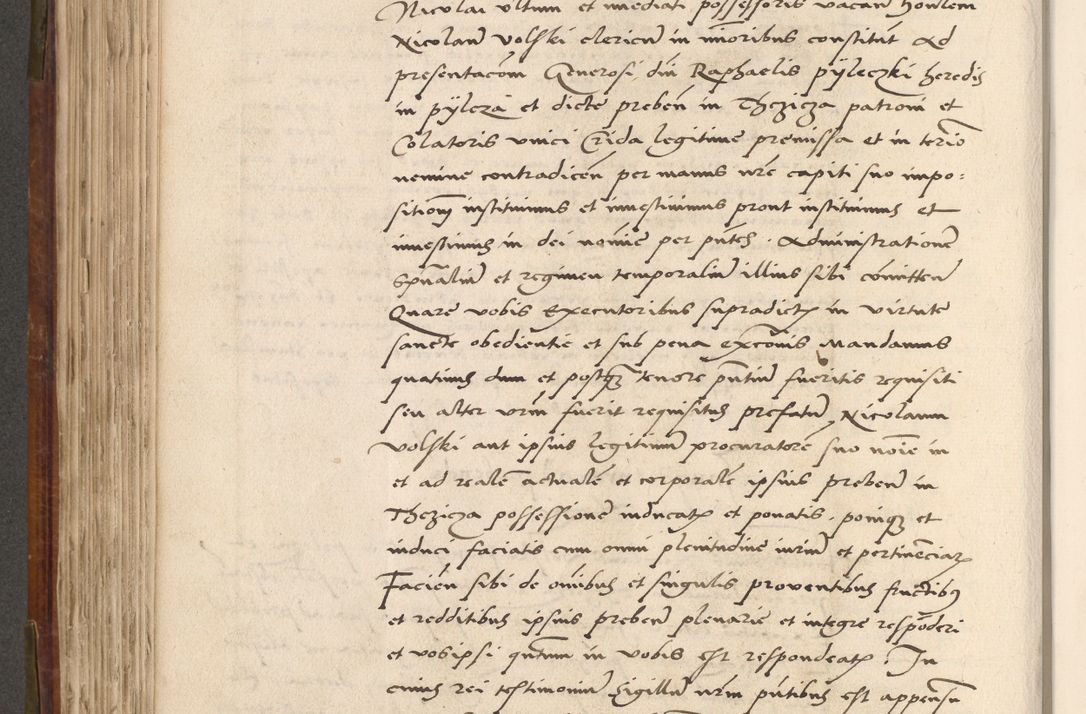 Nicolai ultimi et imediati possessoris vacan̄ honlem
Nicolaū volski clericū in mīoribus constitut̄ Ad
presentacōm Generosi dn̄i Raphaelis pÿleczki heredis
in pÿlcza et dicte preben̄ in Thczicza patroni et
Colatoris vnici Crida legitime premissa et in terīo
nemine contradicen̄ per manus nr̄e capiti suo impo-
sitiom̄ instituimus et inuestiuimus prout instituimus et
inuestimus in dei nōmie per pn̄tes Administrationē
Spn̄aliū et regimen temporaliū illius sibi cōmitten̄
Quare vobis Executoribus supradictꝝ in virtute
sancte obedientie et sub pena excōnis Mandamus
quatinus dum et postqꝫ tenore pn̄tiū fueritis requisiti
seu alter vrm̄ fuerit requisitus prefatū Nicolaum
volski aut ipsius legitimū procuratorē suo noīe in
et ad realē actualē et corporalē ipsius preben̄ in
Thcziczа possessionē inducatꝝ et ponatis, poniqꝫ et
induci faciatis cum omni plenitudine iuriū et pertinēciarꝝ
Facien̄ sibi de om̄ibus et singulis proventibus fructibꝫ
et redditibus ipsius preben̄ plenarie et integre respōderi
et vosipsi qn̄tum in vobis est respondeatꝝ. In
cuius rei testimoniū sigillū nrm̄ pn̄tibus est appensu